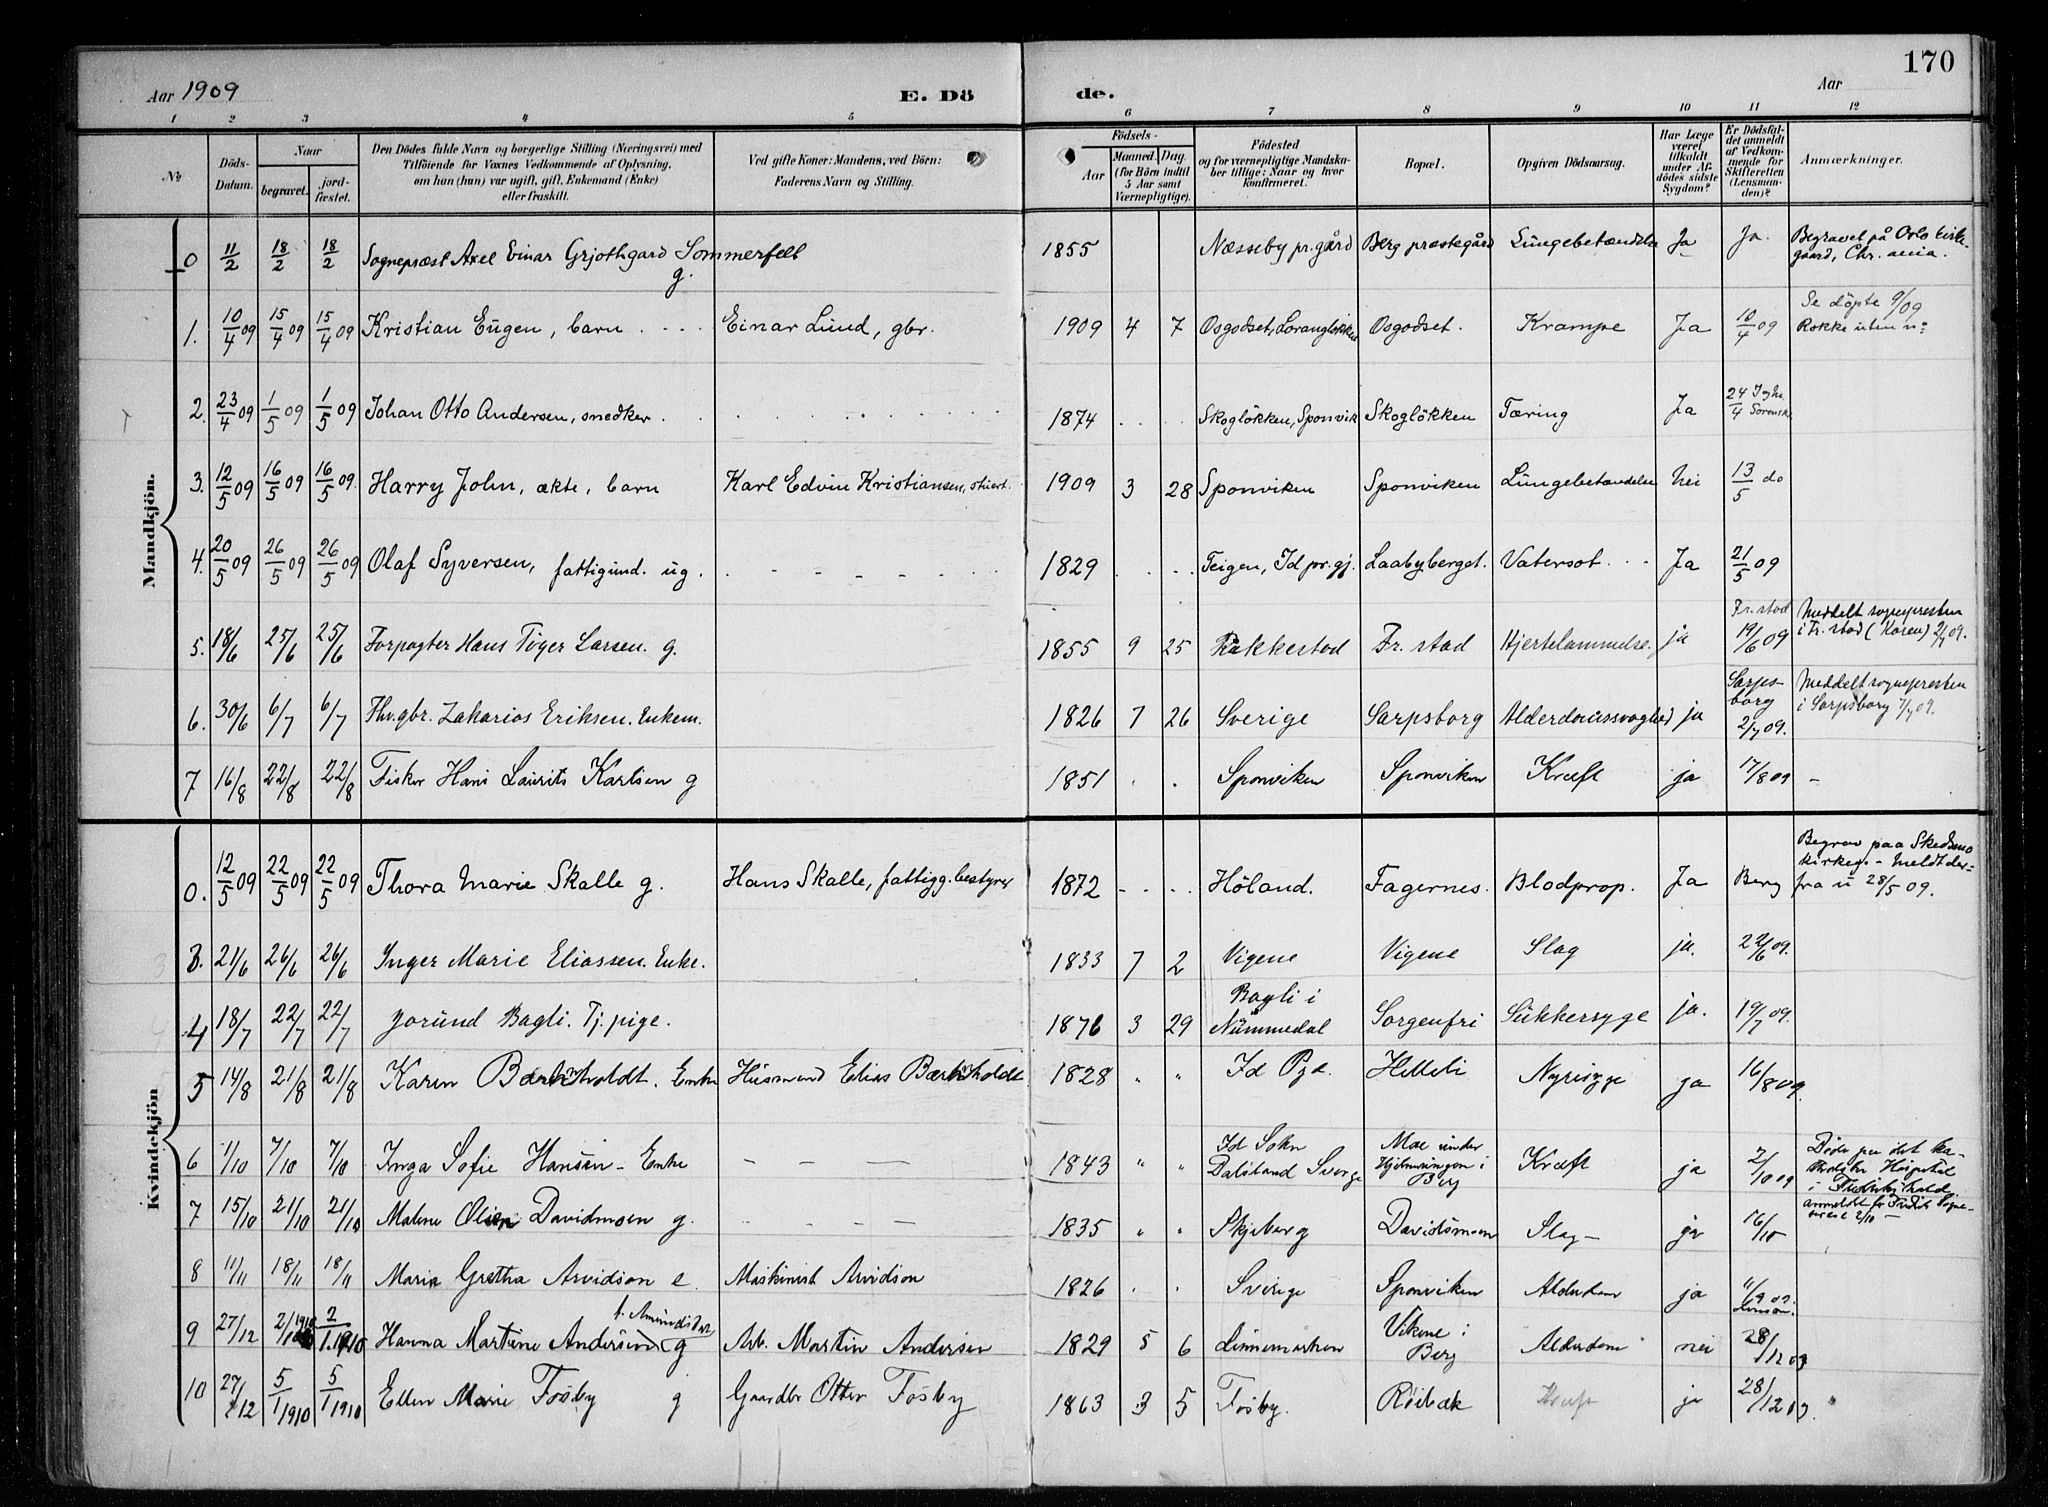 Aar 1909 E. Dö de. Aar 170
1 2 3 4 5 6 7 8 9 10 11 12
No. Döds-Datum. Naar begravet. jord-fæstet. Den Dödes fulde Navn og borgerlige Stilling (Næringsvei) med Tilföiende for Voxnes Vedkommende af Oplysning, om han (hun) var ugift, gift, Enkemand (Enke) eller fraskilt. Ved gifte Koner: Mandens, ved Börn: Faderens Navn og Stilling. Födsels- Aar Maaned. Dag. (for Börn indtil 5 Aar samt Værnepligtige). Födested og for værnepligtige Mandska-ber tillige: Naar og hvor Konfirmeret. Bopæl. Opgiven Dödsaarsag. Har Læge været tilkaldt under Af-dödes sidste Sygdom? Er Dödsfal-det anmeldt af Vedkom-mende for Skifteretten (Lensman-den)? Anmærkninger.
Mandkjön.
0 11/2 18/2 18/2 Sogneprest Axel Einar Grjothgard Sommerfelt g. 1855 Næsseby pr.gård Berg præstegård Lungebetændelse Ja Ja. Begravet på Oslo kirke-gaard, Chr.ania.
1. 10/4 09 15/4 09 15/4 09 Kristian Eugen, barn Einar Lund, gbr. 1909 4 7 Osgodset, Osgodset. Krampe Ja 10/4 09 Se döpte 9/09 Rokke uten n:
2. 23/4 09 1/5 09 1/5 09 Johan Otto Andersen, snedker 1874 Skogløkken, Sponvik Skogløkken Tæring Ja 24/4
3. 12/5 09 16/5 09 16/5 09. Harry John, ækte, barn Karl Edvin Kristiansen, stuert. 1909 3 28 Sponviken Sponviken Lungebetændelse Nei 13/5 do
4. 20/5 09 26/5 09 26/5 09 Olaf Syversen, fattigund. ug. 1829 Teigen, Id pr.gj. Laabyberget. Vatersot Ja 21/5 09
5. 18/6 25/6 25/6 Forpagter Hans Töger Larsen. g. 1855 9 25 Rakkestad Fr.stad Hjertelammelse. ja Fr.stad 19/6 09 Meddelt sognepresten i Fr.stad (Koren) 2/7 09.
6. 30/6 6/7 6/7 Fhv.gbr. Zakarias Eriksen. Enkem. 1826 7 26 Sverige Sarpsborg Alderdomssvaghed ja Sarpsborg 2/7 09. Meddelt sognepresten i Sarpsborg 7/7 09.
7 16/8 22/8 22/8 Fisker Hans Laurits Karlsen g 1851 Sponviken Sponviken Kræft ja 17/8 09 -
Kvindekjön
0. 12/5 09 22/5 09 22/5 09 Thora Marie Skalle g. Hans Skalle, fattigg.bestyrer 1872 Höland. Fagernes. Blodprop. Ja Berg Begrav paa Skedsmo kirkeg. - Meldt der-fra 28/5 09.
3. 21/6 26/6 26/6 Inger Marie Eliassen. Enke. 1833 7 2 Vigene Vigene Slag ja. 22/6 09.
4 18/7 22/7 22/7 Jorund Bagli. Tj.pige. 1876 3 29 Bagli i Nummedal Sorgenfri Sukkersyge ja. 19/7 09.
5 14/8 21/8 21/8 Karen Bærbyholdt. Enke Husmand Elias Bærbyholdt 1828 " " Id Helleli Nyresyge ja 16/8 09.
6 1/10 7/10 7/10 Inga Sofie Hansen - Enke - - - 1843 " " Id Sokn Dalsland Sverge Moe under i Berg Kræft ja 2/10 09 Döde paa det ka-tholske Hospital i Fredrikshald anmeldt
7 15/10 21/10 21/10 Malene Olsen Davidmoen g. - - - 1835 " " Skjeberg Davidsmoen Slag - ja 16/10
8 11/11 18/11 18/11 Maria Gretha Arvidson e. Maskinist Arvidson 1826 Sverige Sponviken Alderdom ja
9 27/12 2/1 1910 2/1.1910 Hanna Martine Andersen f. Amundsdat g Arb. Martin Andersen 1829 5 6 Linnemarken Vikene i Berg Alderdom nei 28/12 09
10 27/12 5/1 1910 5/1 1910 Ellen Marie Fosby g Gaardbr Otter Fosby 1863 3 5 Fosby. Rödbæk ja 28/12 09.